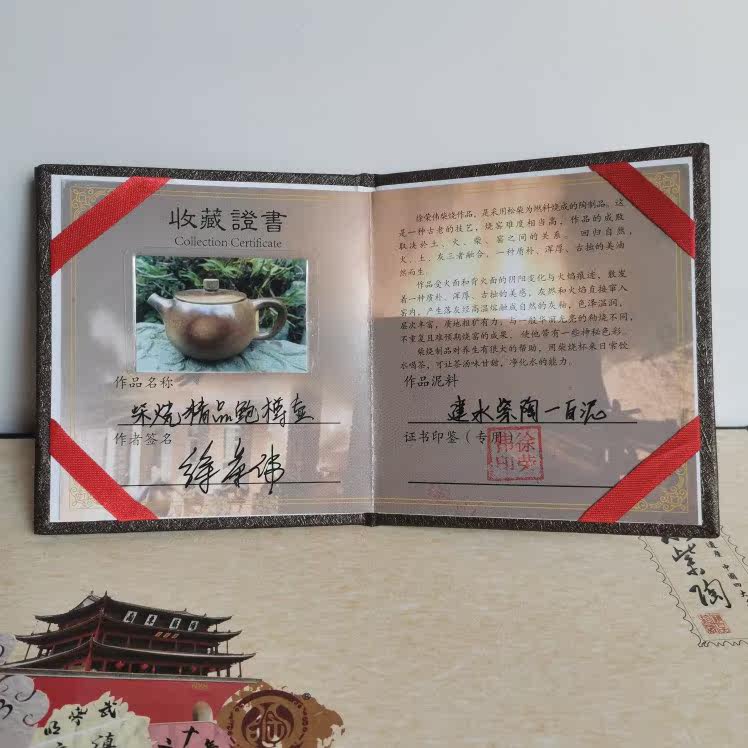 收藏證書
Collection Certificate
作品名称
柴烧精品鲍樽壶
作者签名
徐荣伟
徐荣伟柴烧作品，是采用松柴为燃料烧成的陶制品。这
是一种古老的技艺，烧窑难度相当高，作品的成败
取决於土、火、柴、窑之间的关系。回归自然，
火、土、灰三者融合，一种质朴、浑厚、古拙的美油
然而生。
作品受火面和背火面的阴阳变化与火焰痕迹，散发
着一种质朴、浑厚、古拙的美感，灰烬和火焰直接窜入
窑内，产生落灰经高温熔融成自然的灰釉，色泽温润，
层次丰富，质地粗犷有力，与一般华丽光亮的釉烧不同，
不重复且难预期烧窑的成果，使他带有一些神秘色彩。
柴烧制品对养生有很大的帮助，用柴烧杯来日常饮
水喝茶，可让茶汤味甘甜，净化水的能力。
作品泥料
建水紫陶一百泥
证书印鉴（专用）
徐荣
伟印
紫陶
中国四大